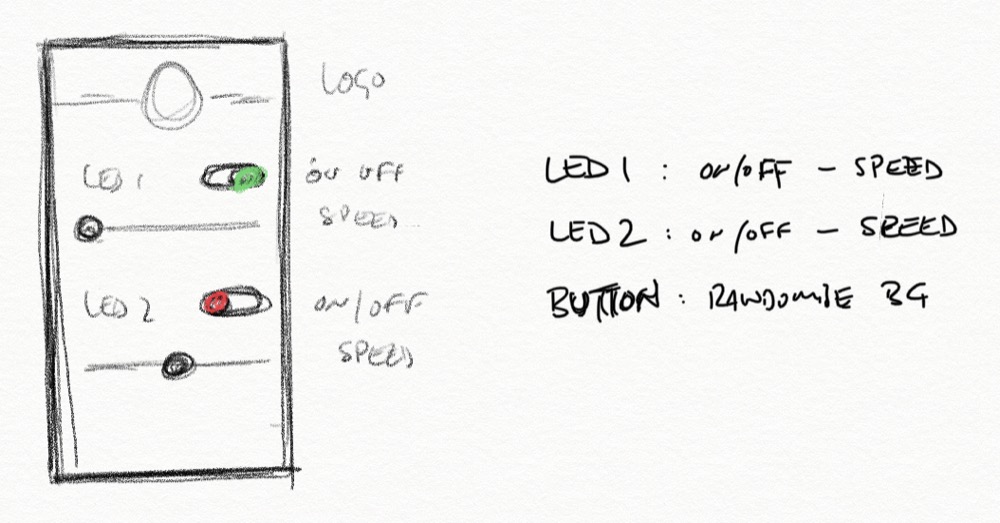 LOGO
LED 1
ON OFF
SPEED
LED 2
ON/OFF
SPEED
LED 1 : ON/OFF – SPEED
LED 2 : ON/OFF – SPEED
BUTTON : RANDOMIZE BG